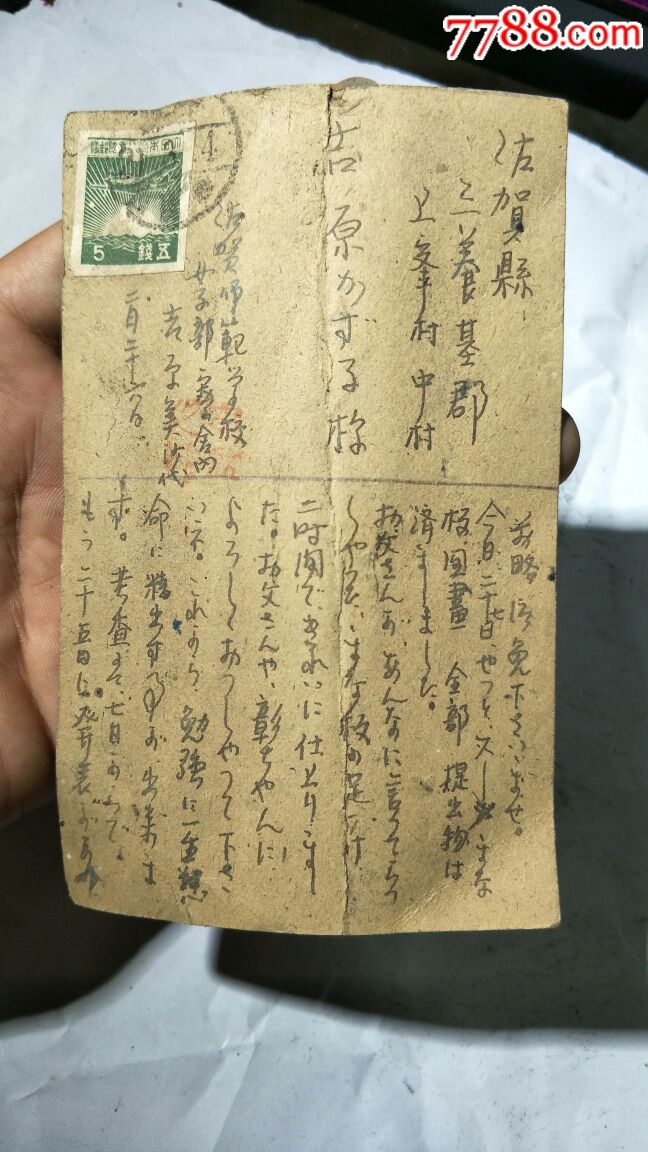 7788.com
佐賀縣
三養基郡
上峯村中村
吉原かず子様
4
5
五銭
佐賀師範学校
女子部寄宿舎内
吉原美沙代
二月二十六日
前略御免下さいませ。
今日、二十七日、やっと、スーまな
板図畫 全部 提出物は
済ましました。
お父さんが、あんなに言ってらっ
しゃった、まな板の足だけ
二時間で、きれいに仕上りまし
た。お父さんや、彰ちゃんに
よろしくおっしゃって下さ
いね。これから、勉強に一生懸
命に精出す事が出来ま
す。考査まで、七日からで、
もう二十五日に发表があ